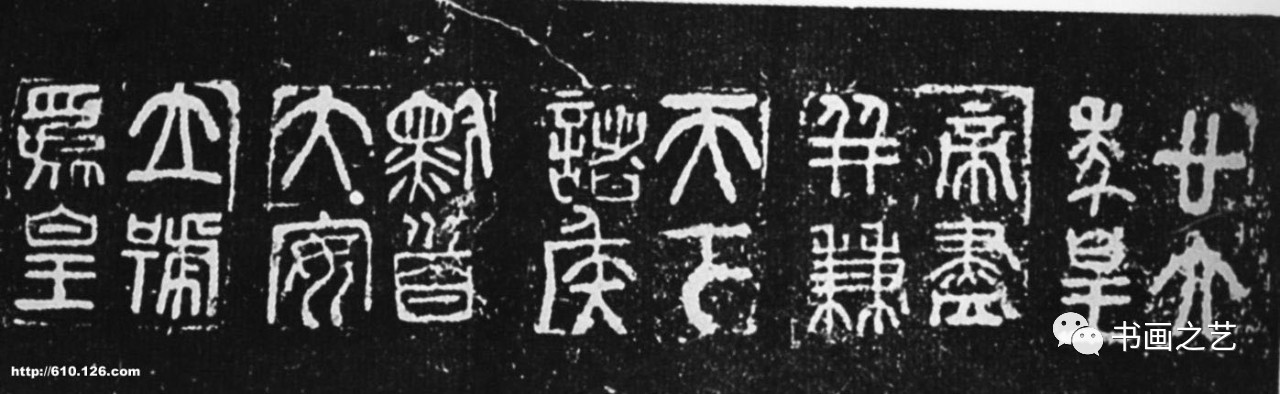 廿六
年皇
帝盡
并兼
天下
諸侯
黔首
大安
立號
為皇
书画之艺
http://610.126.com